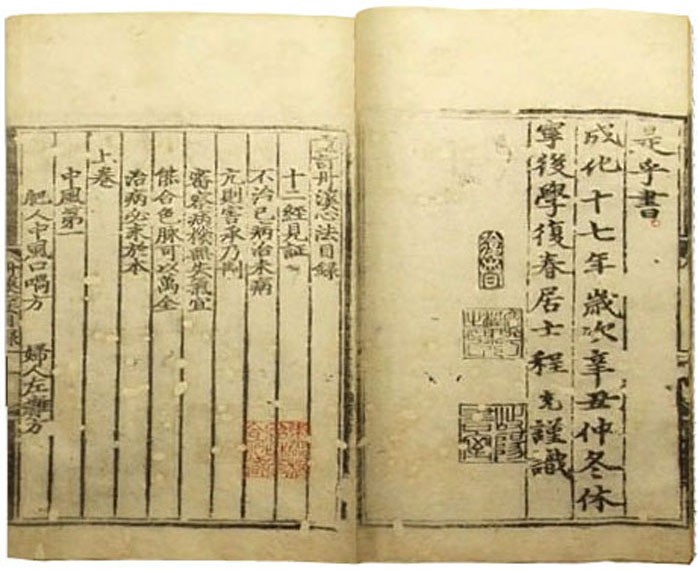 是乎書
成化十七年歲次辛丑仲冬休
寧後學復春居士程充謹識
丹溪心法目錄
十二經見証
不治已病治未病
亢則害承乃制
審察病機無失氣宜
能合色脉可以萬全
治病必求於本
上卷
中風第一
肥人中風口喎方 婦人左癱方